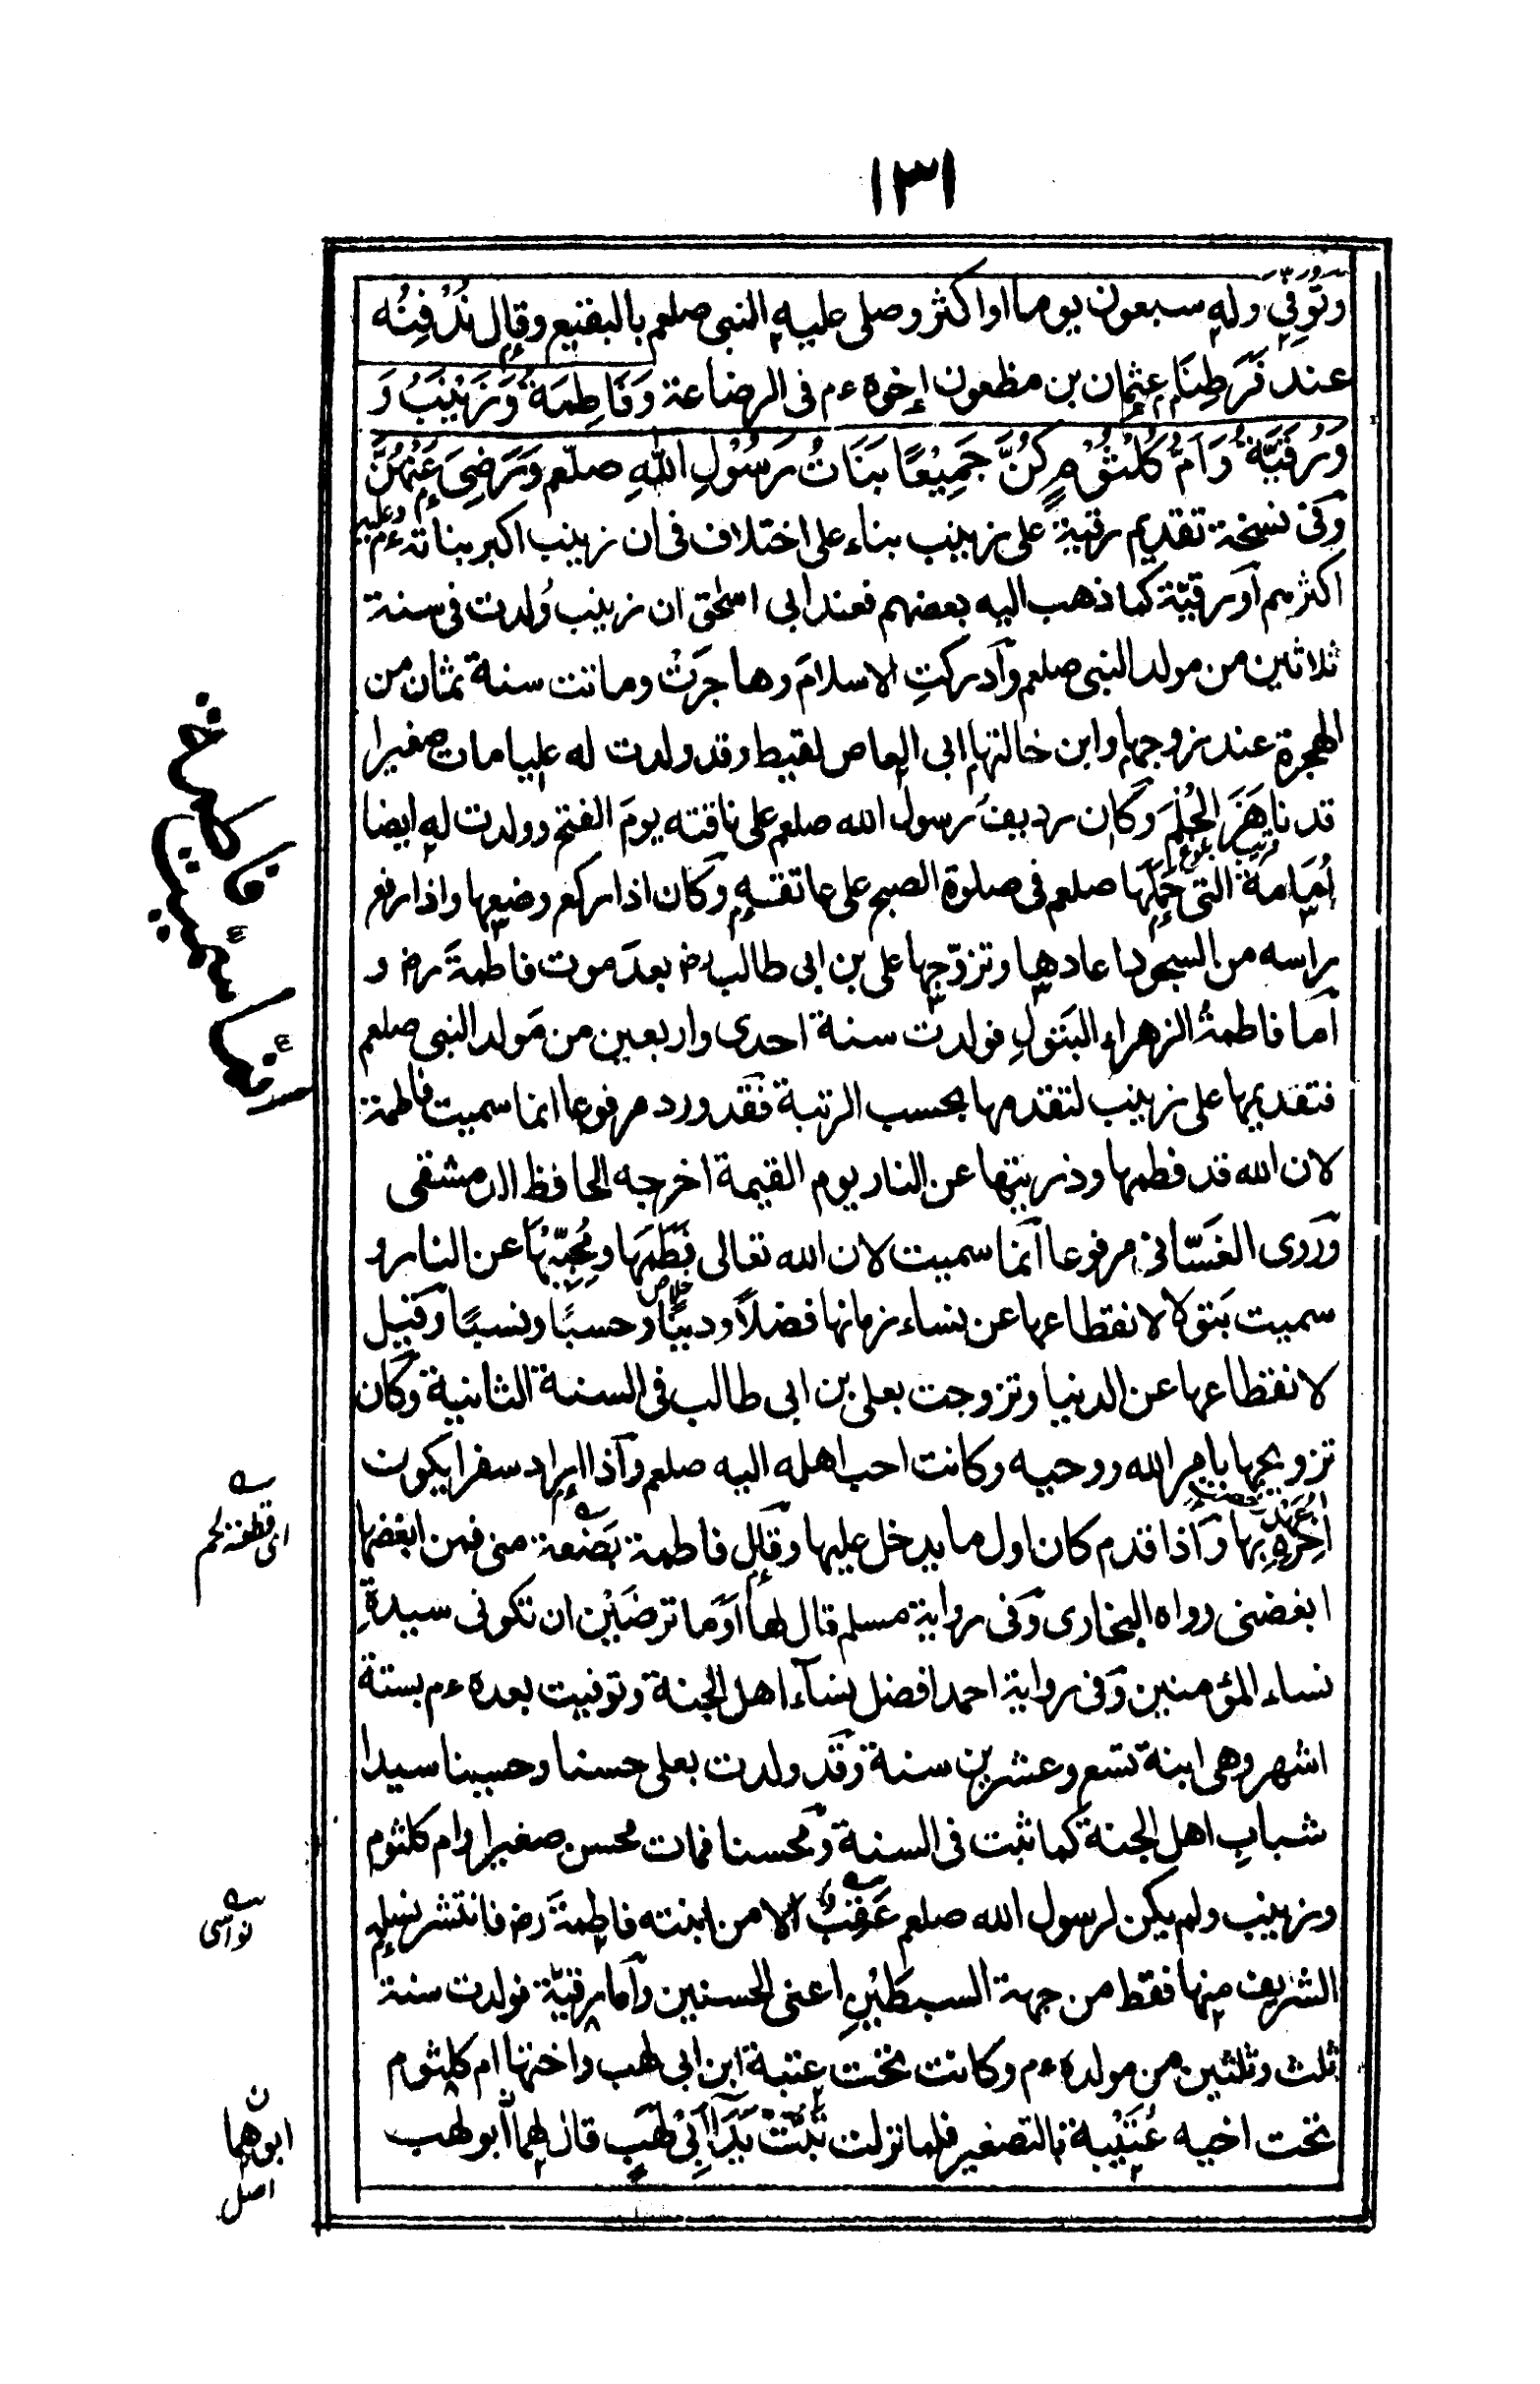 ١٣١
وَتُوُفِّيَ وله سبعون يوما او اكثر وصلى عليه النبى صلعم بالبقيع وقال نُدْفِنُه
عند فَرَطِنَا عثمان بن مظعون اخوه ءم فى الرضاعة وَفَاطِمَةُ وَزَيْنَبُ وَ
وَرُقَيَّةُ وَاُمُّ كُلْثُوْمٍ كُنَّ جَمِيْعًا بَنَاتُ رَسُوْلِ اللهِ صلّعم وَرَضِىَ عَنْهُنَّ
وفى نسخة تقديم رقية على زينب بناء على اختلاف فى ان زينب اكبر بناته ءم وعليه
اكثرهم او رقيّة كما ذهب اليه بعضهم فعند ابى اسحٰق ان زينب وُلدت فى سنة
ثلاثين من مولد النبى صلعم وأدركتِ الاسلامَ وهاجرَتْ وماتت سنة ثمان من
الهجرة عند زوجها وابن خالتها ابى العاص لقيط وقد ولدت له عليا مات صغيرا
قد ناهَزَ الحُلُمَ وكان رديفَ رسول الله صلعم على ناقته يومَ الفتح وولدت له ايضا
قريب بلوغ
اُمَامة التى حَمَلَها صلعم فى صلوة الصبح على عاتقه وكان اذا ركع وضعها واذا رفع
راسه من السجود اعادها وتزوّجها على بن ابى طالب رض بعدَ موت فاطمةَ رض و
اما فاطمةُ الزهراء البَتولِ فولدت سنة احدى واربعين من مَولد النبى صلعم
فتقديمها على زينب لتقدمها بحسب الرتبة فقد ورد مرفوعا انما سميت فاطمة
لان الله قد فطمها وذريتها عن النار يوم القيمة اخرجه الحافظ الدمشقى
وروى الغَسّانى مرفوعا انما سميت لان الله تعالى فَطَمَها ومُحِبّيْهَا عن النار و
خلاص
سميت بَتولا لانقطاعها عن نساء زمانها فضلًا ودينًا وحسبًا ونسبًا وقيل
لانقطاعها عن الدنيا وتزوجت بعلى بن ابى طالب فى السنة الثانية وكان
تزويجها بامر الله ووحيه وكانت احب اهله اليه صلعم واذا اراد سفرا يكون
اٰخِرُ عَهْدِه بها واذا قدم كان اول ما يدخل عليها وقال فاطمة بَضْعة منى فمن ابغضها
ابغضنى رواه البخارى وفى رواية مسلم قال لها أوَما ترضَيْن ان تكونى سيدةِ
نساء المؤمنين وفى رواية احمد افضل نسآء اهل الجنة وتوفيت بعده ءم بستة
اشهر وهى ابنة تسع وعشرين سنة وقد ولدت بعلى حسنا وحسينا سيدا
شبابِ اهل الجنة كما ثبت فى السنة ومحسنا فمات محسن صغيرا وام كلثوم
وزينب ولم يكن لرسول الله صلعم عَقِبٌ الا من ابنته فاطمةَ رض فانتشر نسله
الشريف منها فقط من جهة السبطَيْنِ اعنى الحسنين واما رقيّة فولدت سنة
ثلث وثلثين من مولده ءم وكانت تحت عتبة ابن ابى لهب واختها ام كلثوم
تحت اخيه عُتَيْبة بالتصغير فلما نزلت تَبَّتْ يَدَا اَبِىْ لَهَبٍ قال لهما أبو لهب
اى قطعة لحم
نواسى
ن
ابوهما
اصل